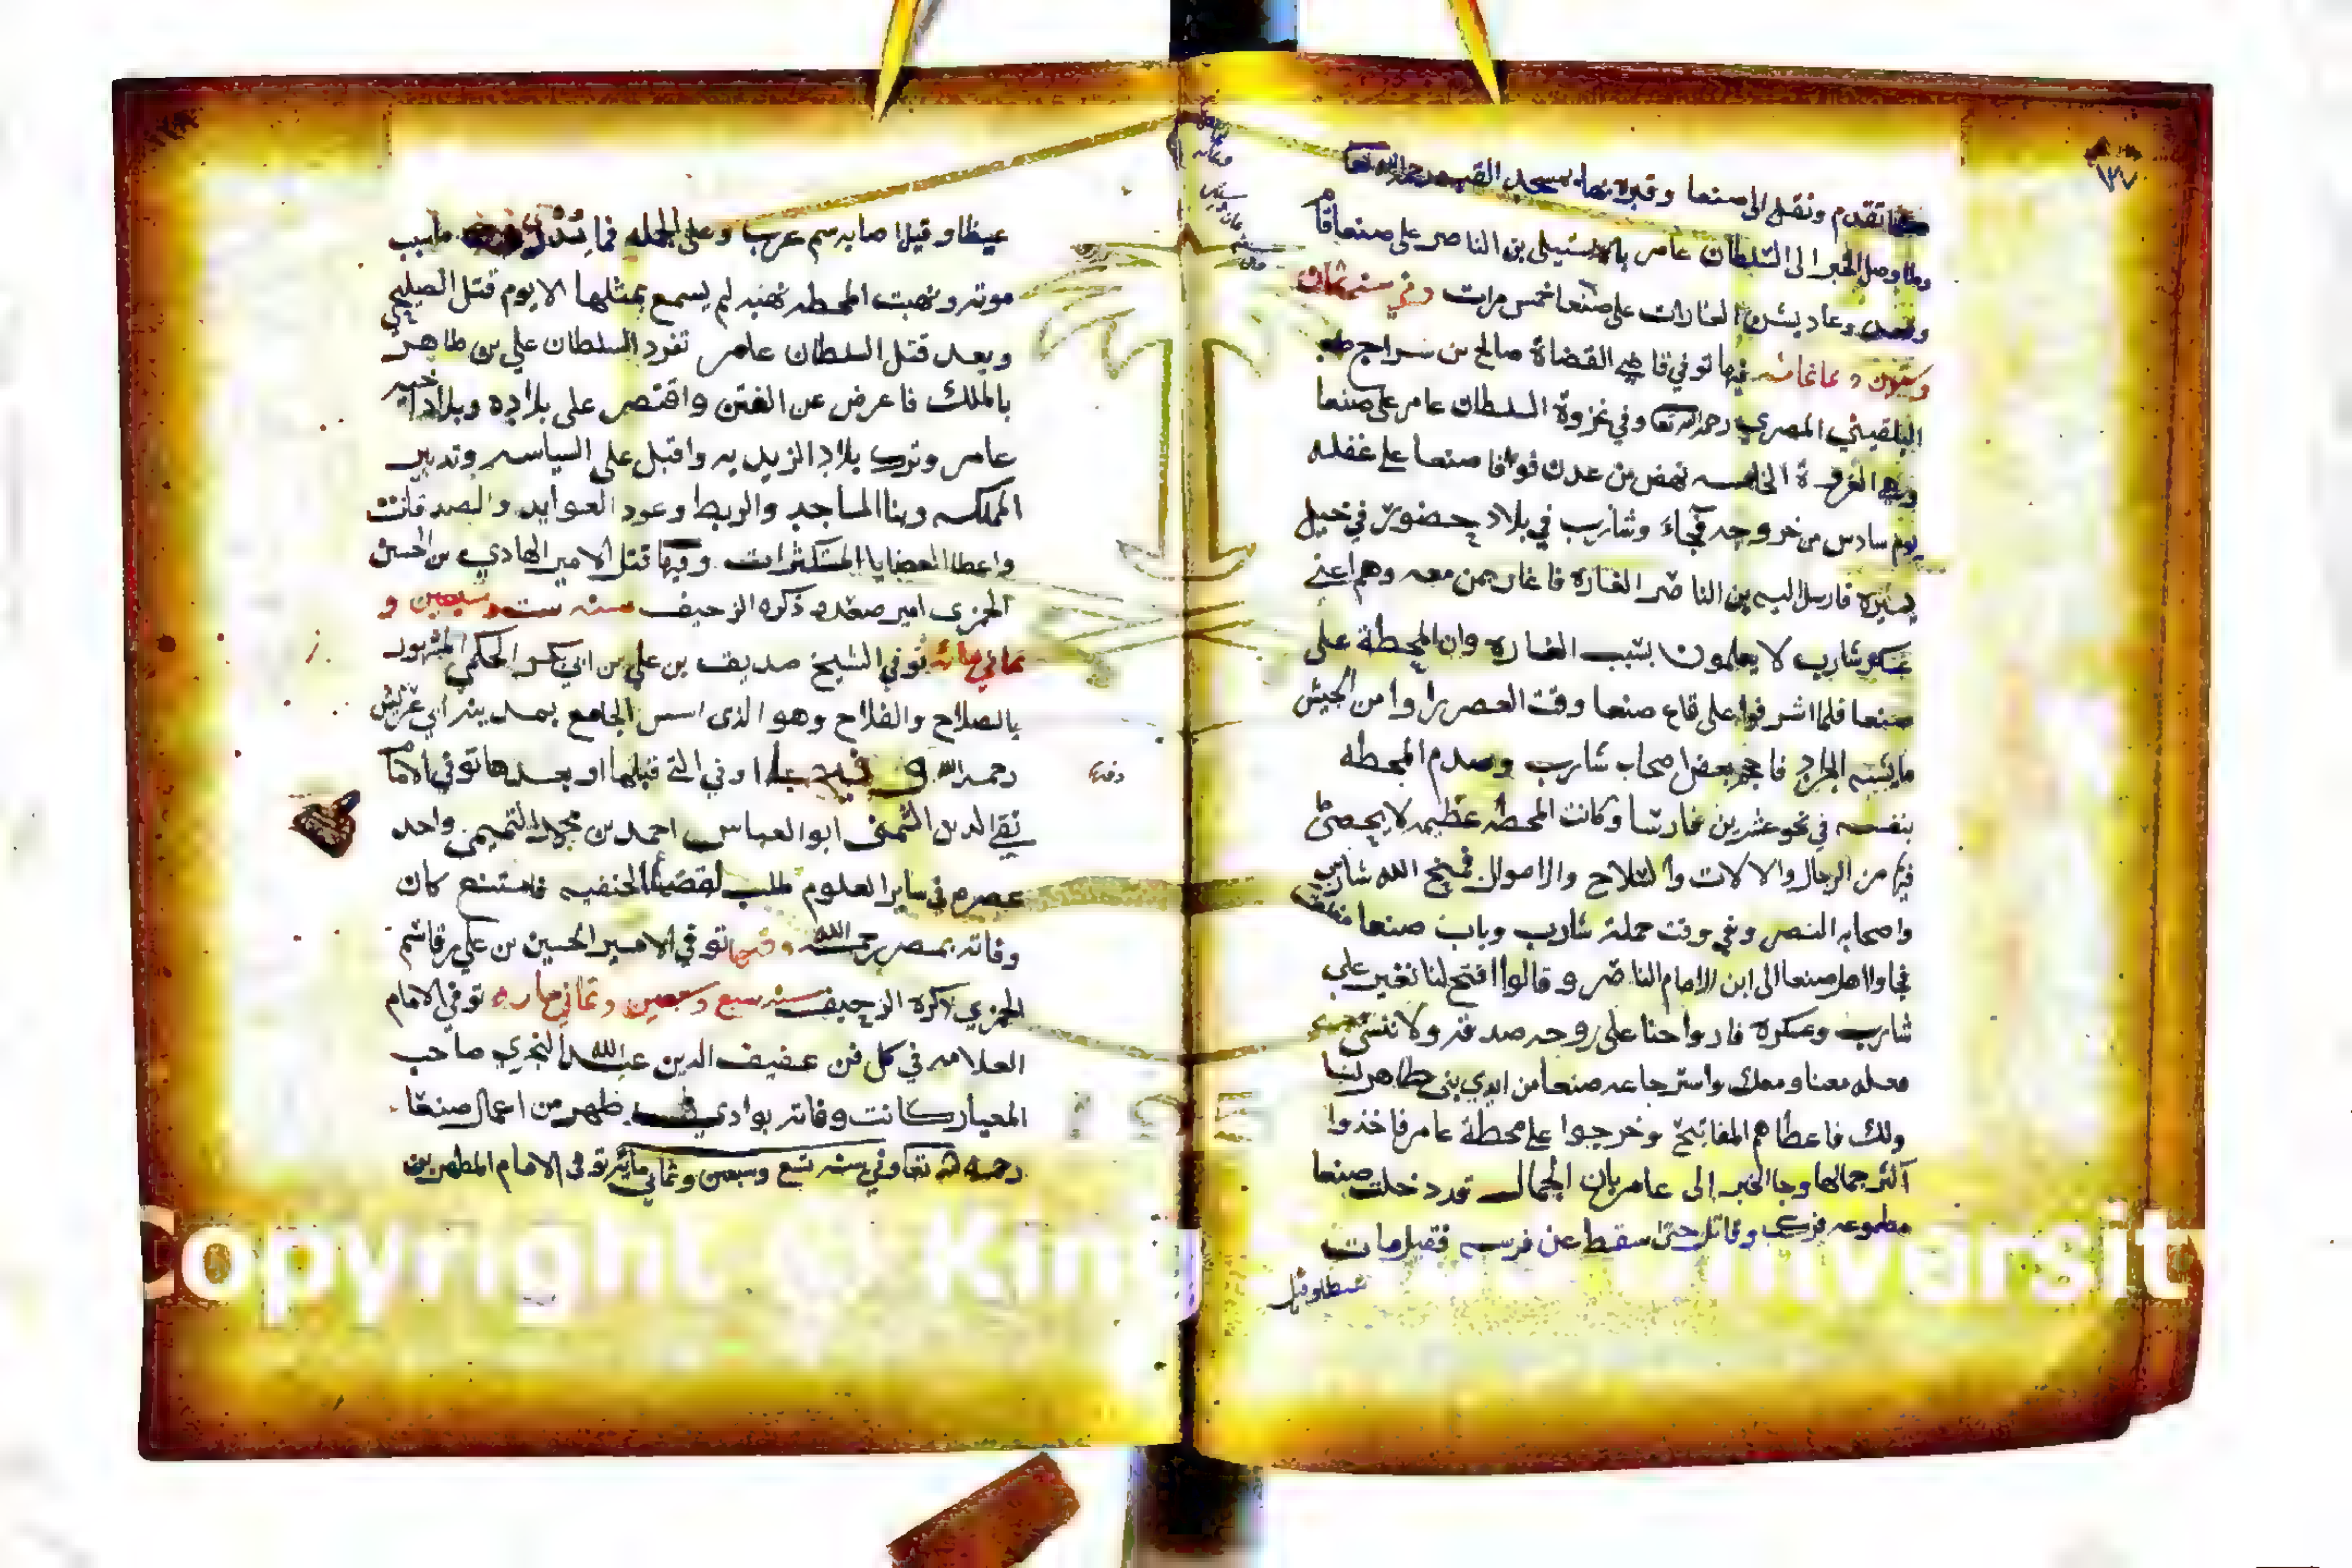 كما تقدم ونقل الى صنعا وقبره بها بمسجد القبه رحمه الله تعا
ولما وصل الخبر الى السلطان عامر باستيلى بن الناصر على صنعا قام
وقعد وعاد يشن الغارات على صنعا خمس مرات وفي سنه ثمان
وستين وثمانمائه فيها توفي قاضي القضاة صالح بن سراج
البلقيني المصري رحمه الله تعا وفي غزوة السلطان عامر على صنعا
وهي الغزوة الخامسه نهض من عدن فوافا صنعا على غفله
يوم سادس من خروجه فجاء وشارب في بلاد حضور في خيل
يسيره فارسل اليه بن الناصر الغارة فاغار بمن معه وهم اعني
عسكر شارب لا يعلمون بسبب الغاره وان المحطة على
صنعا فلما اشرفوا على قاع صنعا وقت العصر راوا من الجيش
ما يشبه الجراد فاحجم بعض اصحاب شارب وصدم المحطه
بنفسه في نحو عشرين فارسا وكانت المحطه عظيمه لا يحصى
فيها من الرجال والالات والسلاح والاموال فمنح الله شارب
واصحابه النصر وفي وقت حملة شارب وباب صنعا
فجاوا اهل صنعا الى ابن الامام الناصر وقالوا افتح لنا نغير على
شارب وعسكره فارواحنا على روحه صدقه ولا ننسى
معنا ومعك واسترجاعه صنعا من ايدي بني طاهر لنا
ولك فاعطاهم المفاتيح وخرجوا على محطة عامر فاخذوا
اكثر جمالها وجا الخبر الى عامر بان الجمال قد دخلت صنعا
فركب وقاتل حتى سقط عن فرسه فقيل مات
غيظا وقيل
غيظا وقيل اصابه سهم عرب وعلى الجمله فما سبب
موته ونهبت المحطه نهبه لم يسمع بمثلها الا يوم قتل الصليحي
وبعد قتل السلطان عامر تفرد السلطان علي بن طاهر
بالملك فاعرض عن الفتن واقتصر على بلاده وبلاد اخيه
عامر وترك بلاد الزيديه واقبل على السياسه وتدبير
المملكه وبنا المساجد والربط وعود العوايد والصدقات
واعطا العطايا المستكثرات وفيها قتل الامير الهادي بن الحسين
الحمزي امير صعده ذكره الزحيف سنه ست وسبعين و
ثماني مائه توفي الشيخ صديق بن علي بن ابي بكر الحكمي المشهور
بالصلاح والفلاح وهو الذي اسس الجامع بمدينة ابي عريش
رحمه الله وفيها او في التي قبلها او بعدها توفي الامام
تقي الدين الشمني ابو العباس احمد بن محمد التميمي واحد
عصره في ساير العلوم طلب لقضا الحنفيه فامتنع كان
وفاته بمصر رحمه الله وفيها توفي الامير الحسين بن علي بن قاسم
الحمزي ذكره الزحيف سنه سبع وسبعين وثماني مايه توفي الامام
العلامه في كل فن عفيف الدين عبدالله النجري صاحب
المعيار كانت وفاته بوادي ظهر من اعمال صنعا
رحمه الله تعا وفي سنه تسع وسبعين وثماني مائة توفي الامام المطهر بن